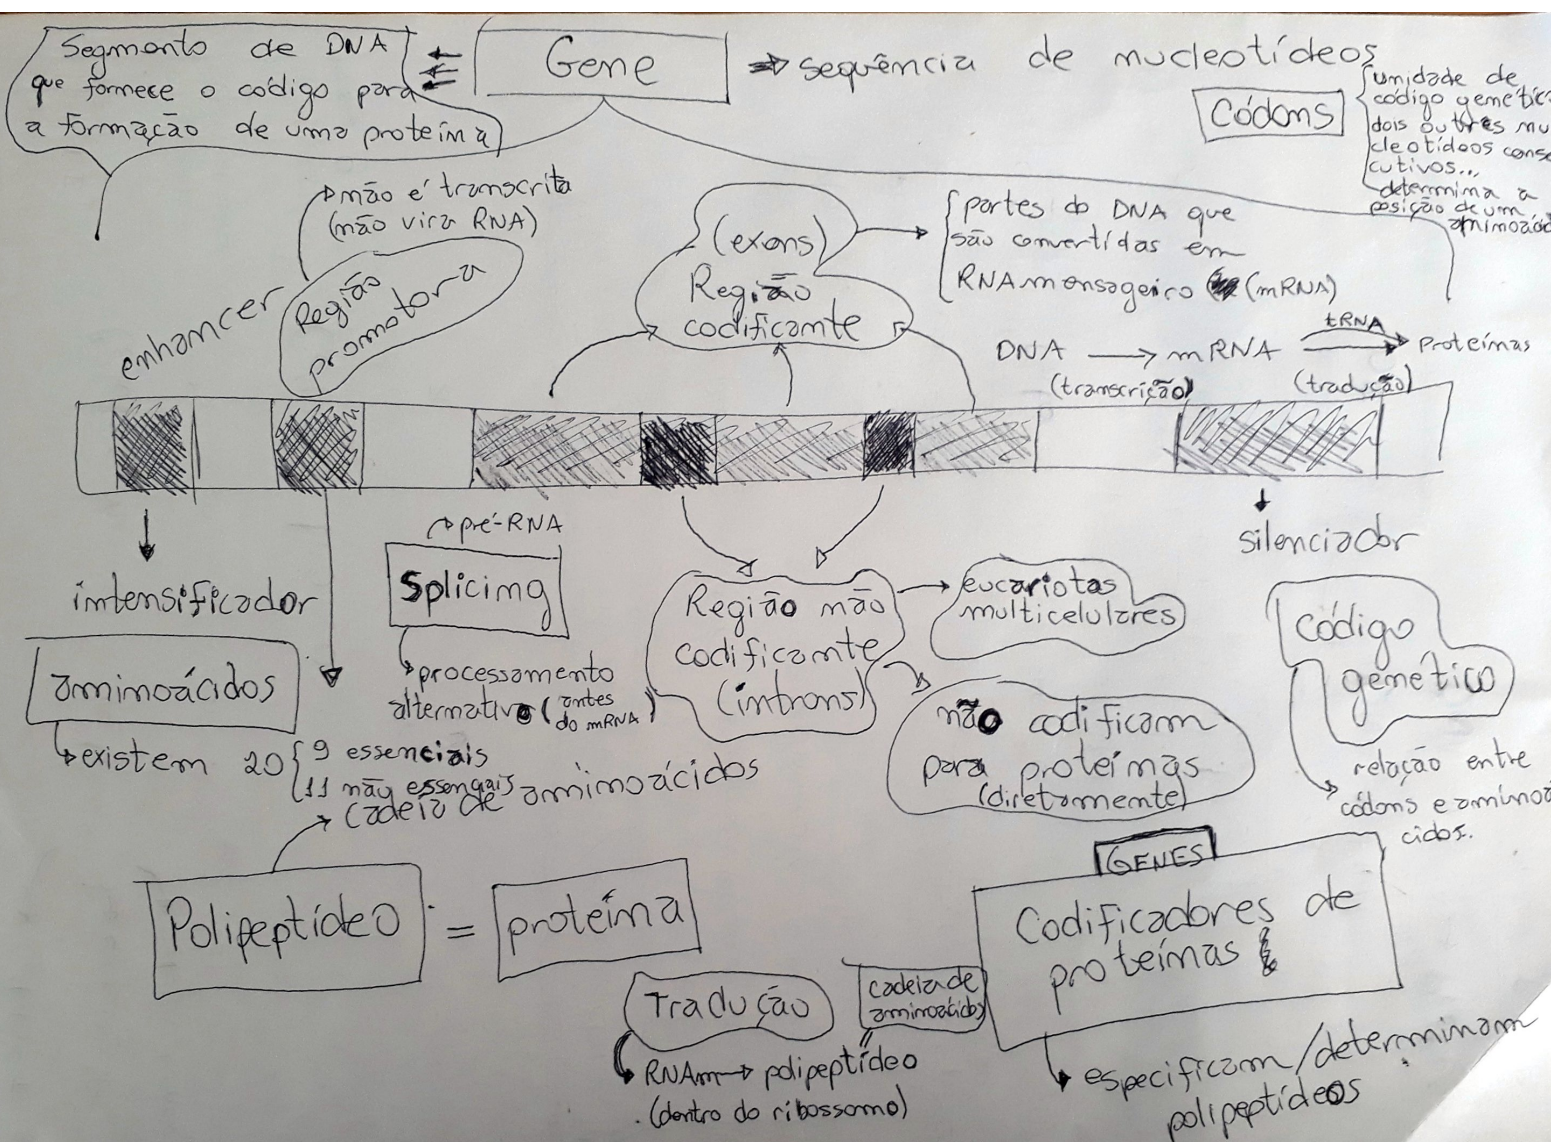 Segmento de DNA
que fornece o código para
a formação de uma proteína
Gene
sequência de nucleotídeos
Códons
unidade de
código genétic
dois outres nu
cleotídeos conse
cutivos...
determina a
posição de um
aminoácid
não é transcrita
(não vira RNA)
enhancer
Região
promotora
(exons)
Região
codificante
partes do DNA que
são convertidas em
RNA mensageiro (mRNA)
DNA → mRNA tRNA proteínas
(transcrição) (tradução)
intensificador
pré-RNA
Splicing
processamento
alternativo (antes
do mRNA)
Região não
codificante
(íntrons)
eucariotas
multicelulares
não codificam
para proteínas
(diretamente)
silenciador
código
genético
relação entre
códons e aminoá
cidos.
aminoácidos
existem 20 { 9 essenciais
11 não essenciais
cadeia de aminoácidos
Polipeptídeo = proteína
Tradução
RNAm → polipeptídeo
(dentro do ribossomo)
cadeia de
aminoácidos
GENES
Codificadores de
proteínas
especificam/determinam
polipeptídeos